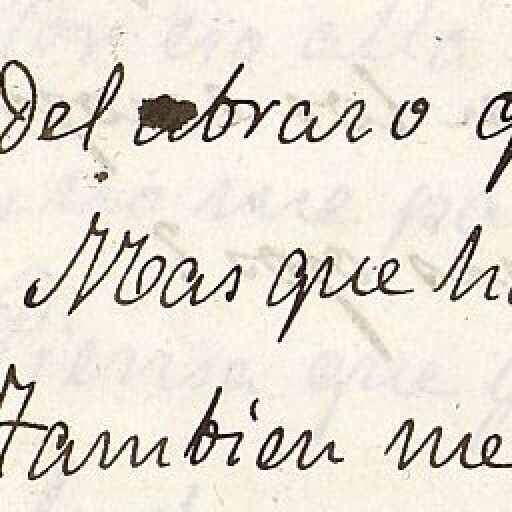 Del abrazo q
Mas que h
Tambien me